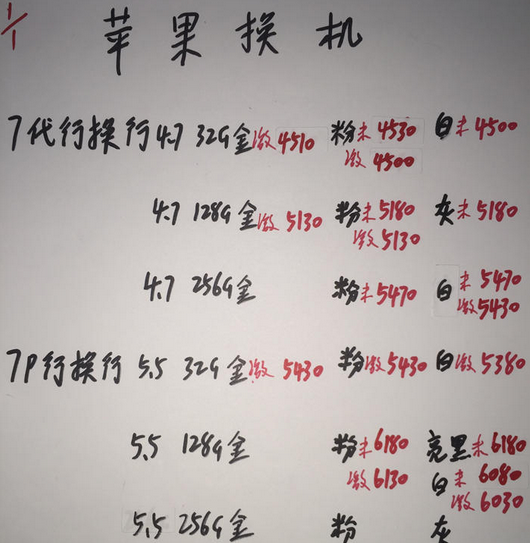 1/1
苹果换机
7代行换行 4.7 32G 金 激4510 粉 未4530 白 未4500
激4500
4.7 128G 金 激5130 粉 未5180 灰 未5180
激5130
4.7 256G 金 粉 未5470 白 未5470
激5430
7P行换行 5.5 32G 金 激5430 粉 激5430 白 激5380
5.5 128G 金 粉 未6180 亮黑 未6180
激6130 白 未6080
激6030
5.5 256G 金 粉 灰